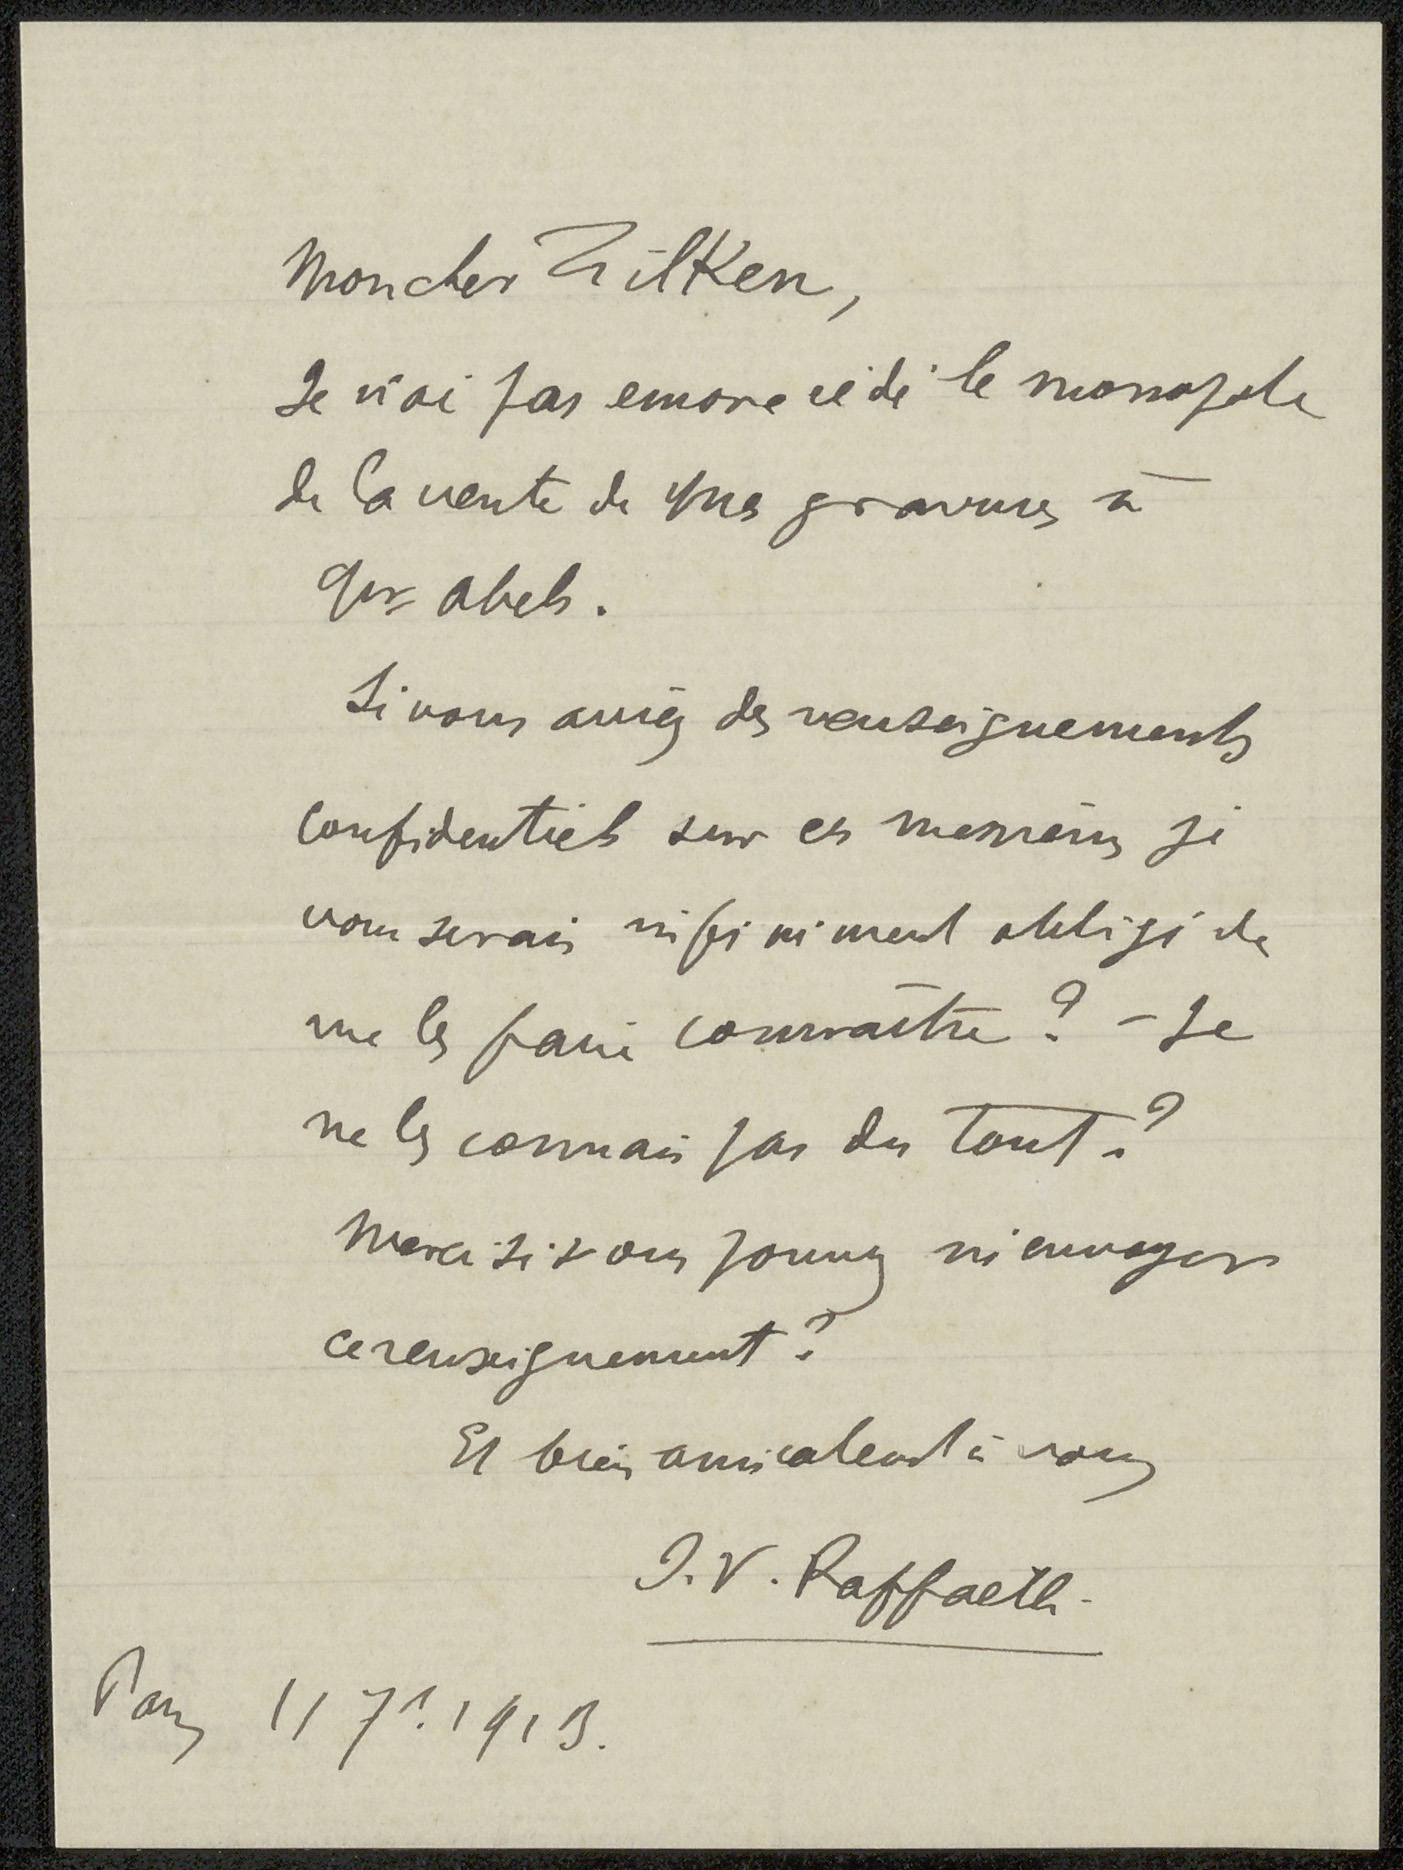 Mon cher Zilken,
Je n'ai pas encore cédé le monopole
de la vente de mes gravures à
Abels.
Si vous aviez des renseignements
confidentiels sur ces messieurs je
vous serais infiniment obligé de
me les faire connaître ? – Je
ne les connais pas du tout ?
Merci si vous pouvez m'envoyer
ce renseignement ?
Et bien amicalemt à vous
J. F. Raffaëlli
Paris 11 7re. 1913.